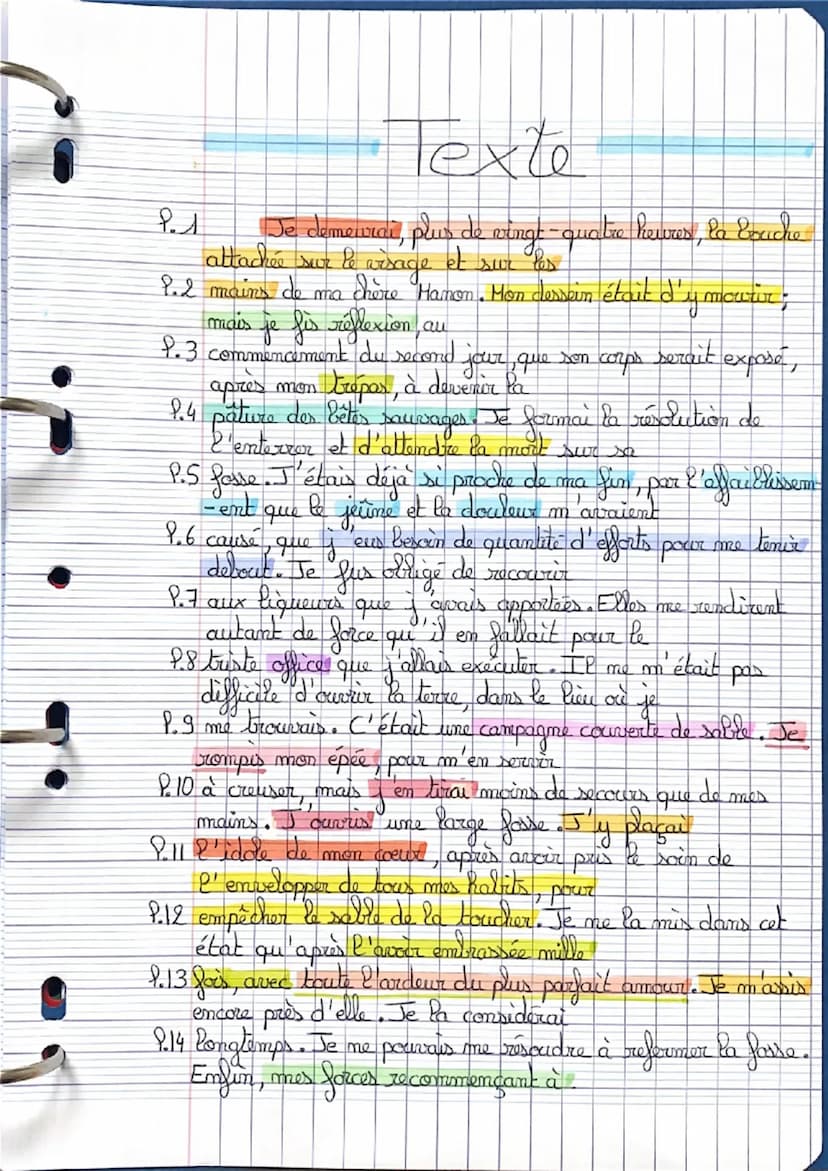 Texte
P.1 Je demeurai, plus de vingt-quatre heures, la bouche
attachée sur le visage et sur les
P.2 mains de ma chère Manon. Mon dessein était d'y mourir ;
mais je fis réflexion, au
P.3 commencement du second jour, que son corps serait exposé,
après mon trépas, à devenir la
P.4 pâture des bêtes sauvages. Je formai la résolution de
l'enterrer et d'attendre la mort sur sa
P.5 fosse. J'étais déjà si proche de ma fin, par l'affaiblissem
-ent que le jeûne et la douleur m'avaient
P.6 causé, que j'eus besoin de quantité d'efforts pour me tenir
debout. Je fus obligé de recourir
P.7 aux liqueurs que j'avais apportées. Elles me rendirent
autant de force qu'il en fallait pour le
P.8 triste office que j'allais exécuter. Il me m'était pas
difficile d'ouvrir la terre, dans le lieu où je
P.9 me trouvais. C'était une campagne couverte de sable. Je
rompis mon épée, pour m'en servir
P.10 à creuser, mais j'en tirai moins de secours que de mes
mains. J'ouvris une large fosse. J'y plaçai
P.11 l'idole de mon coeur, après avoir pris le soin de
l'envelopper de tous mes habits, pour
P.12 empêcher le sable de la toucher. Je me la mis dans cet
état qu'après l'avoir embrassée mille
P.13 fois, avec toute l'ardeur du plus parfait amour. Je m'assis
encore près d'elle. Je la considérai
P.14 longtemps. Je ne pouvais me résoudre à refermer la fosse.
Enfin, mes forces recommençant à